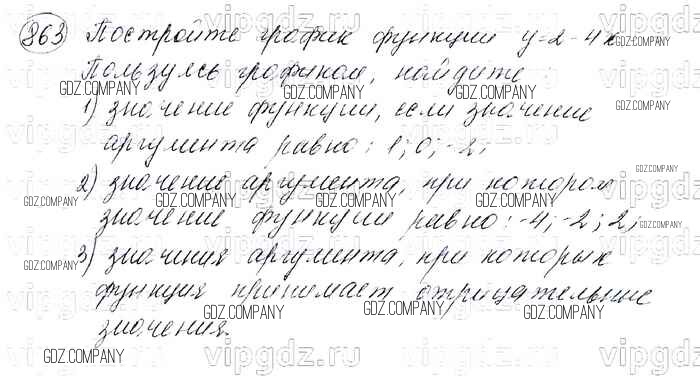 863 Постройте график функции y=2-4x.
Пользуясь графиком, найдите
1) значение функции, если значение
аргумента равно: 1; 0; -2;
2) значение аргумента, при котором
значение функции равно: -4; -2; 2;
3) значения аргумента, при которых
функция принимает отрицательные
значения.
vipgdz.ru
GDZ.COMPANY